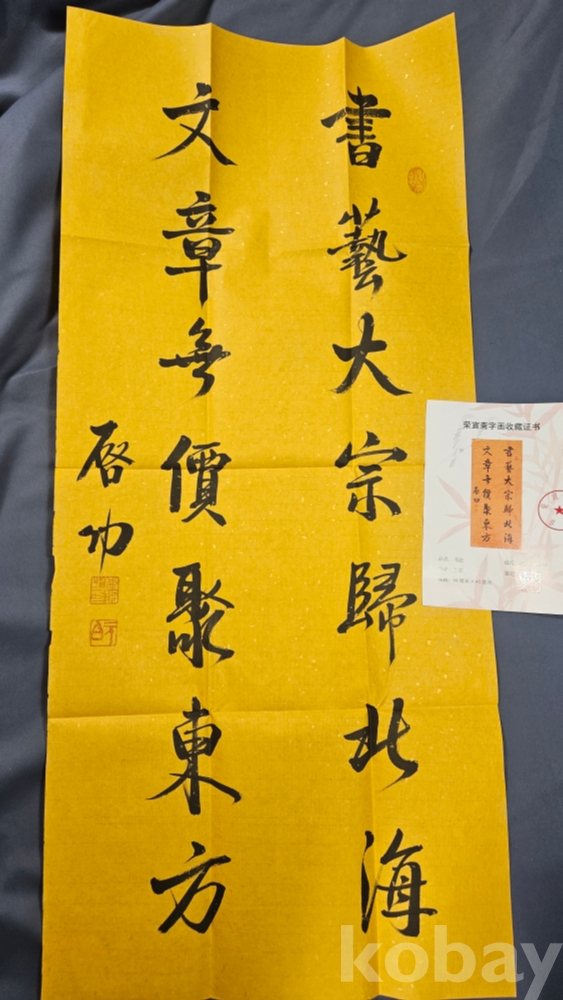 書藝大宗歸北海
文章無價聚東方
啓功
荣宝斋字画收藏证书
書藝大宗歸北海
文章無價聚東方
啓功
kobay